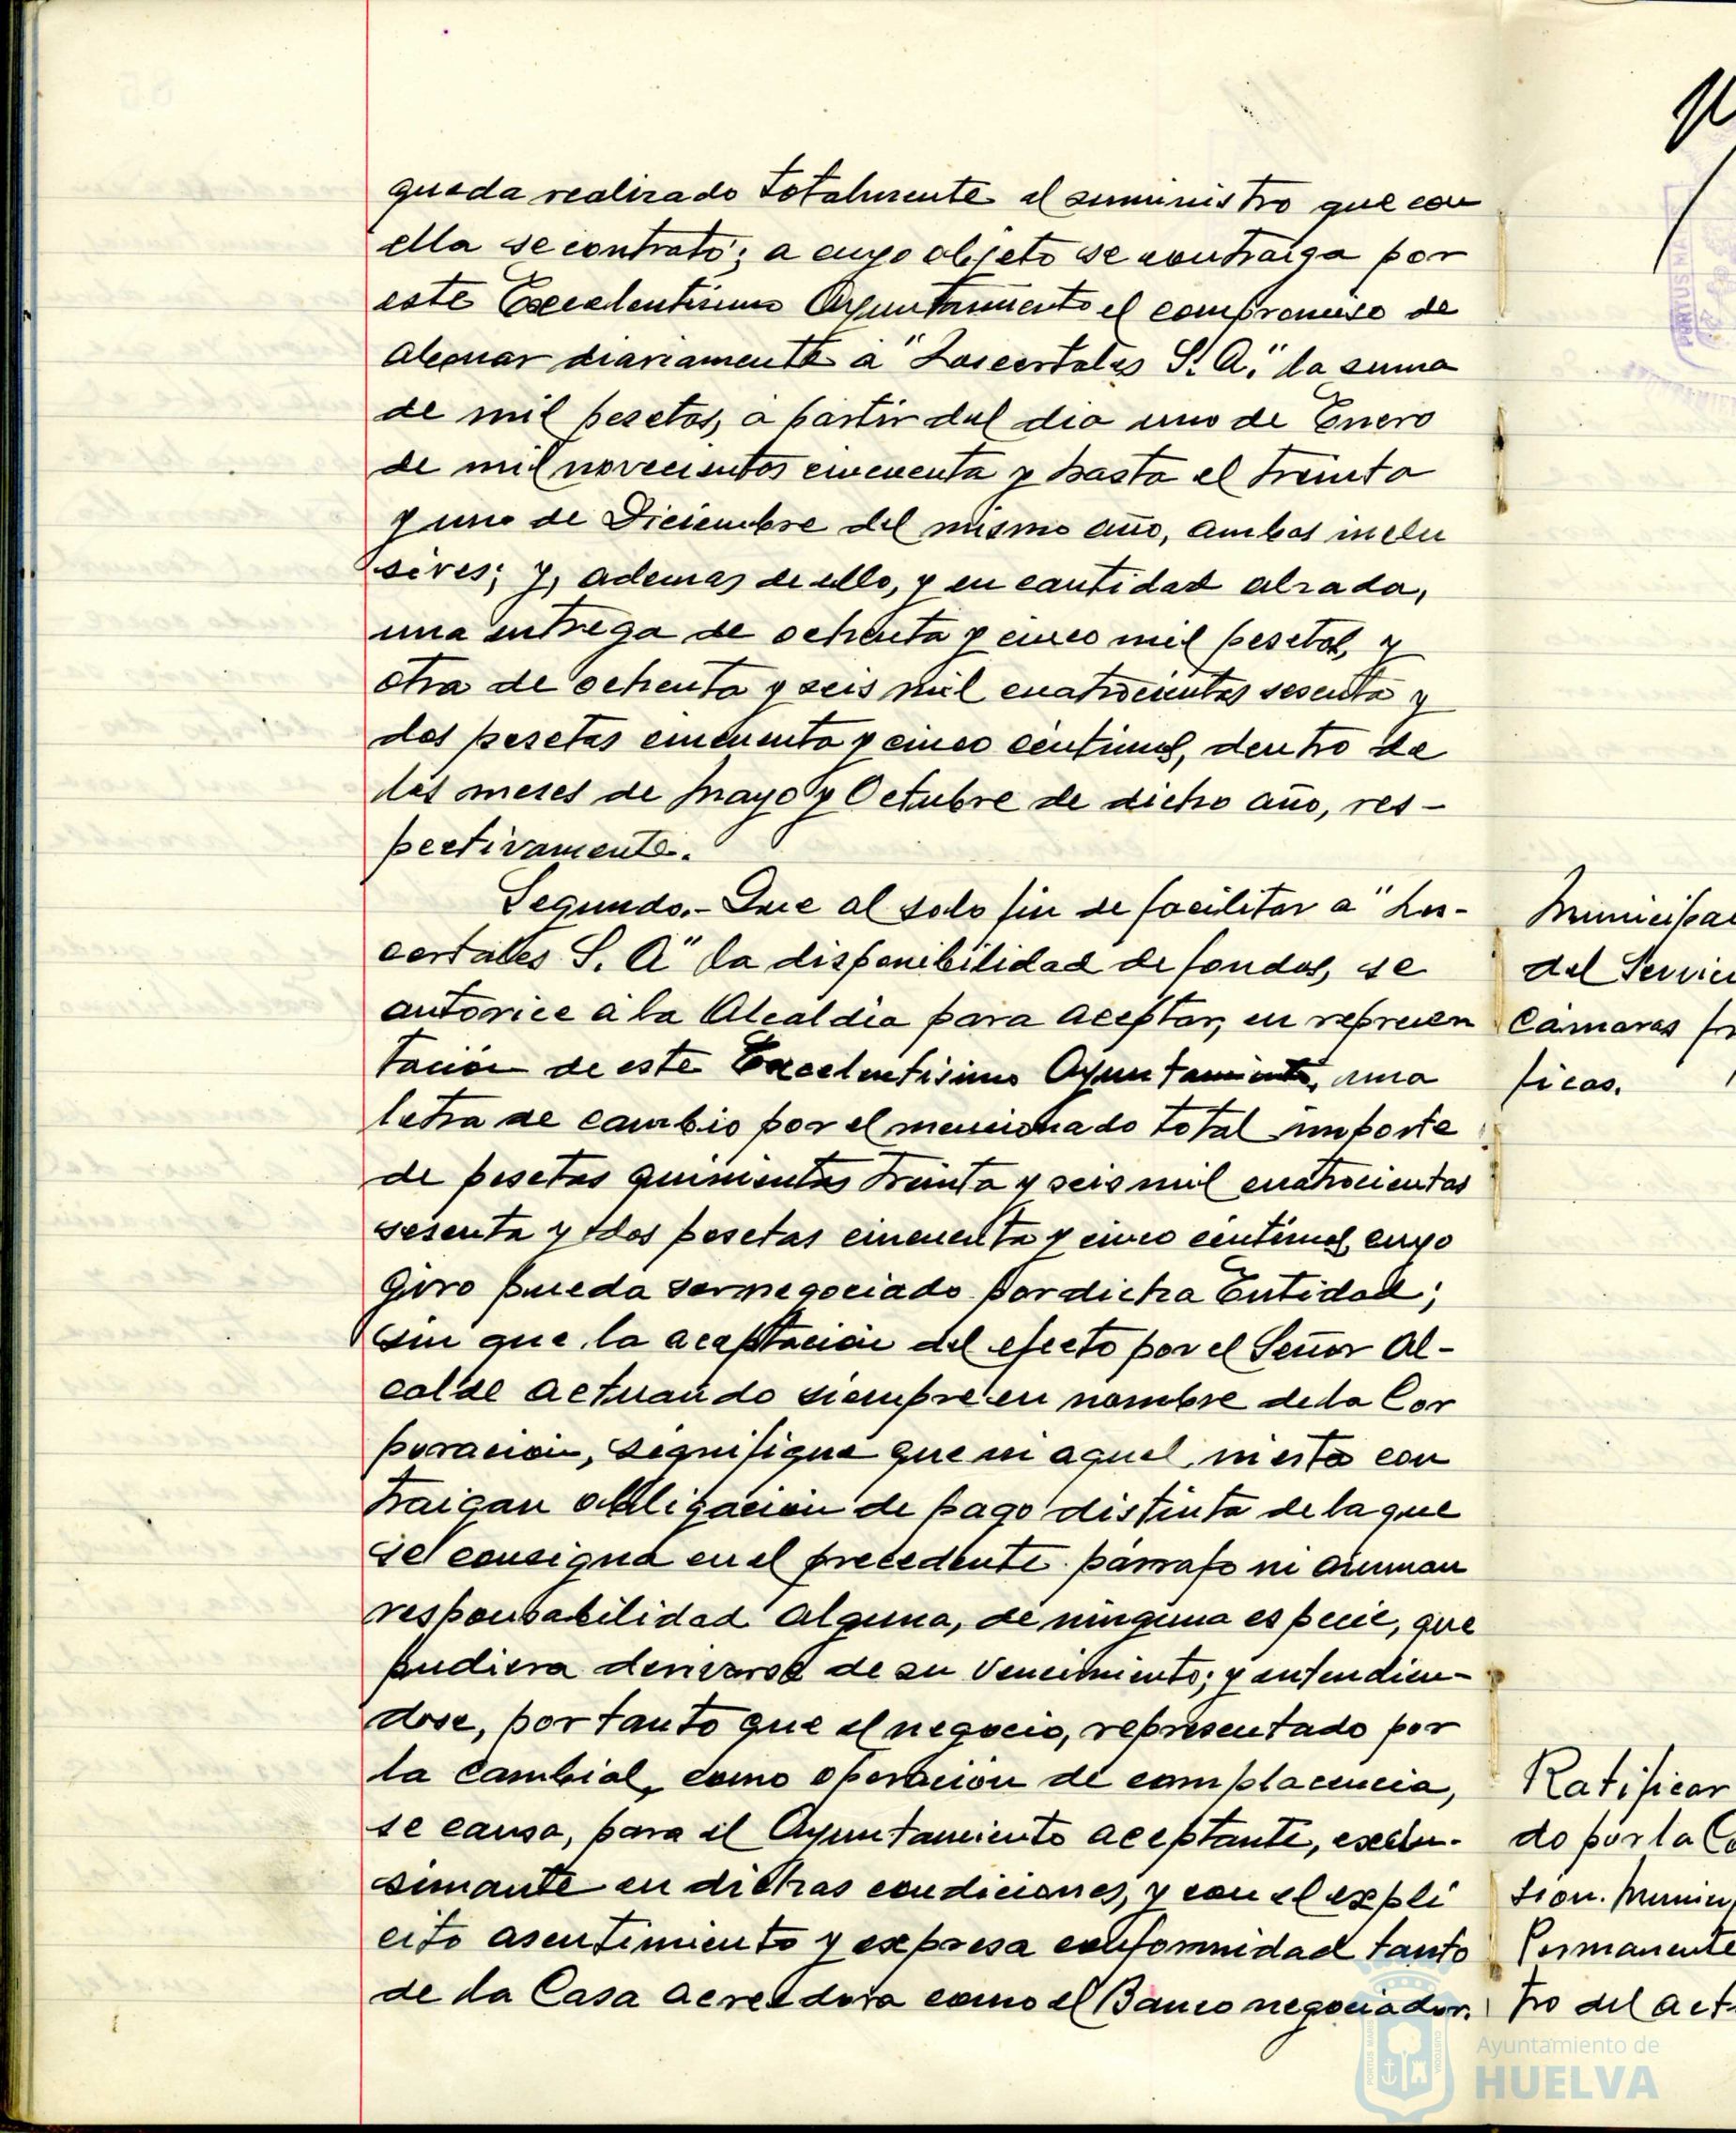 queda realizado totalmente el suministro que con
ella se contrató; a cuyo objeto se contraiga por
este Excelentísimo Ayuntamiento el compromiso de
abonar diariamente a "Loscertales S. A." la suma
de mil pesetas, a partir del dia uno de Enero
de mil novecientos cincuenta y hasta el treinta
y uno de Diciembre del mismo año, ambos inclu
sives; y, ademas de ello, y en cantidad alzada,
una entrega de ochenta y cinco mil pesetas, y
otra de ochenta y seis mil cuatrocientas sesenta y
dos pesetas cincuenta y cinco centimos, dentro de
los meses de Mayo y Octubre de dicho año, res-
pectivamente.
Segundo.- Que al solo fin de facilitar a "Los-
certales S. A" la disponibilidad de fondos, se
autorice a la Alcaldia para aceptar, en represen
tación de este Excelentisimo Ayuntamiento, una
letra de cambio por el mencionado total importe
de pesetas quinientas treinta y seis mil cuatrocientas
sesenta y dos pesetas cincuenta y cinco centimos, cuyo
giro pueda ser negociado por dicha Entidad;
sin que la aceptación del efecto por el Señor Al-
calde actuando siempre en nombre de la Cor
poración, signifique que ni aquel, ni esta con
traigan obligación de pago distinta de la que
se consigna en el precedente párrafo ni asuman
responsabilidad alguna, de ninguna especie, que
pudiera derivarse de su vencimiento; y entendien-
dose, por tanto que el negocio, representado por
la cambial, como operación de complacencia,
se causa, para el Ayuntamiento aceptante, exclu-
simante en dichas condiciones, y con el expli
cito asentimiento y expresa conformidad tanto
de la Casa acreedora como el Banco negociador.
Municipal
del Servici
Cámaras fri
ficas.
Ratificar
do por la Co
sion. Munici
Permanente
tro del act
PORTUS MA
Ayuntamiento de
HUELVA